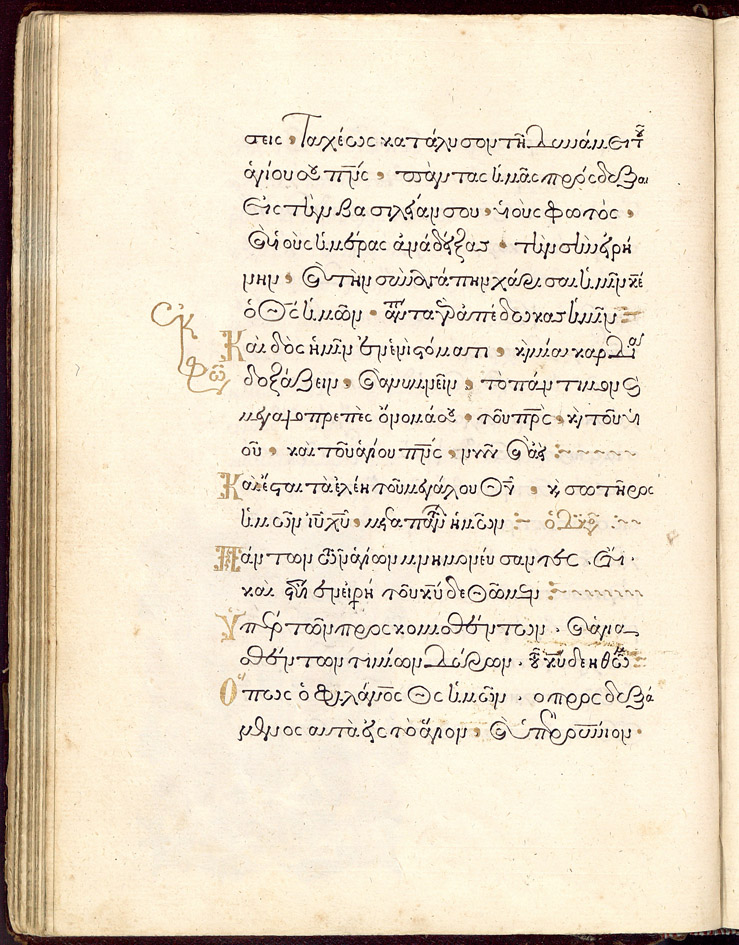 σεις, Ταχέως κατάλυσον τῇ Δυνάμει τοῦ
ἁγίου σου πνς, πάντας ἡμᾶς προσδεξαι
Εἰς τὴν βασιλείαν σου, υἱοὺς φωτὸς,
καὶ υἱοὺς ἡμέρας ἀναδείξας, τὴν σὴν εἰρή
νην, καὶ τὴν σὴν ἀγάπην χάρισαι ἡμῖν κε
ὁ Θς ἡμῶν, πάντα γὰρ ἀπέδωκας ἡμῖν
ἐκφω
Καὶ δὸς ἡμῖν ἐν ἑνὶ στόματι, κ μιᾷ καρδίᾳ
δοξάζειν, καὶ ἀνυμνεῖν, τὸ πάντιμον καὶ
μεγαλοπρεπὲς ὄνομά σου, τοῦ πρς, κ τοῦ υἱ
οῦ, καὶ τοῦ ἁγίου πνς, νῦν καὶ ἀεὶ
Καὶ ἔσται τὰ ἐλέη τοῦ μεγάλου Θυ, κ σωτῆρος
ἡμῶν ιυ χυ, μετὰ πάντων ἡμῶν ὁ Διακ
Πάντων τῶν ἁγίων μνημονεύσαντες. ἔτι.
καὶ ἔτι ἐν εἰρήνῃ τοῦ κυ δεηθῶμεν
Ὑπὲρ τῶν προσκομισθέντων. καὶ ἁγια
σθέντων τιμίων Δώρων. τοῦ κυ δεηθῶμεν
Ὅπως ὁ φιλάνος Θς ἡμῶν. ὁ προσδεξά
μενος αὐτὰ εἰς τὸ ἅγιον, καὶ ὑπερουράνιον.